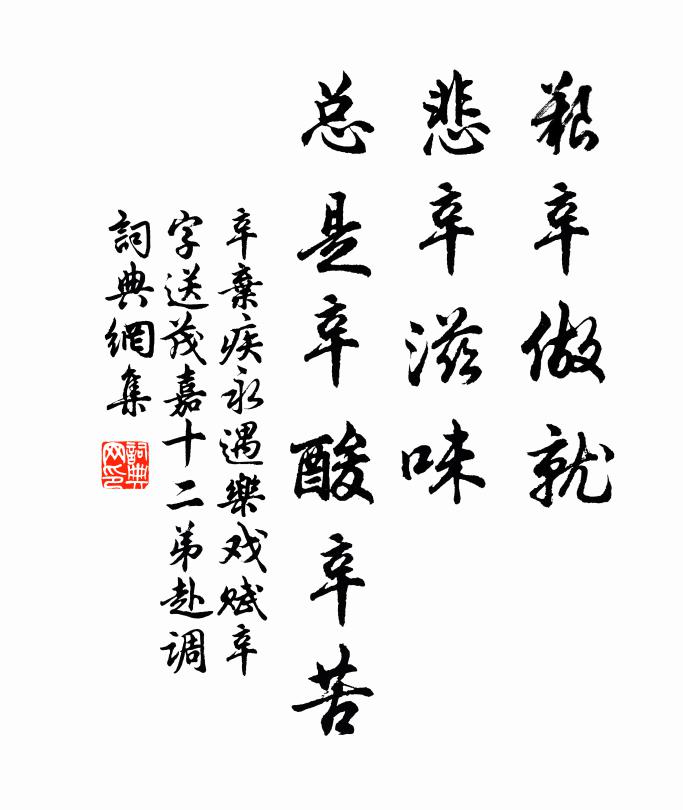 艰辛做就
悲辛滋味
总是辛酸辛苦
辛棄疾永遇樂戏赋辛
字送茂嘉十二弟赴调
詞典網集
詞典网印